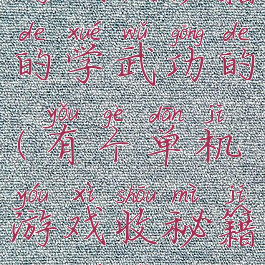 de xué wǔ gōng de
的学武功的
yǒu gè dān jī
(有个单机
yóu xì shōu mì jí
游戏收秘籍